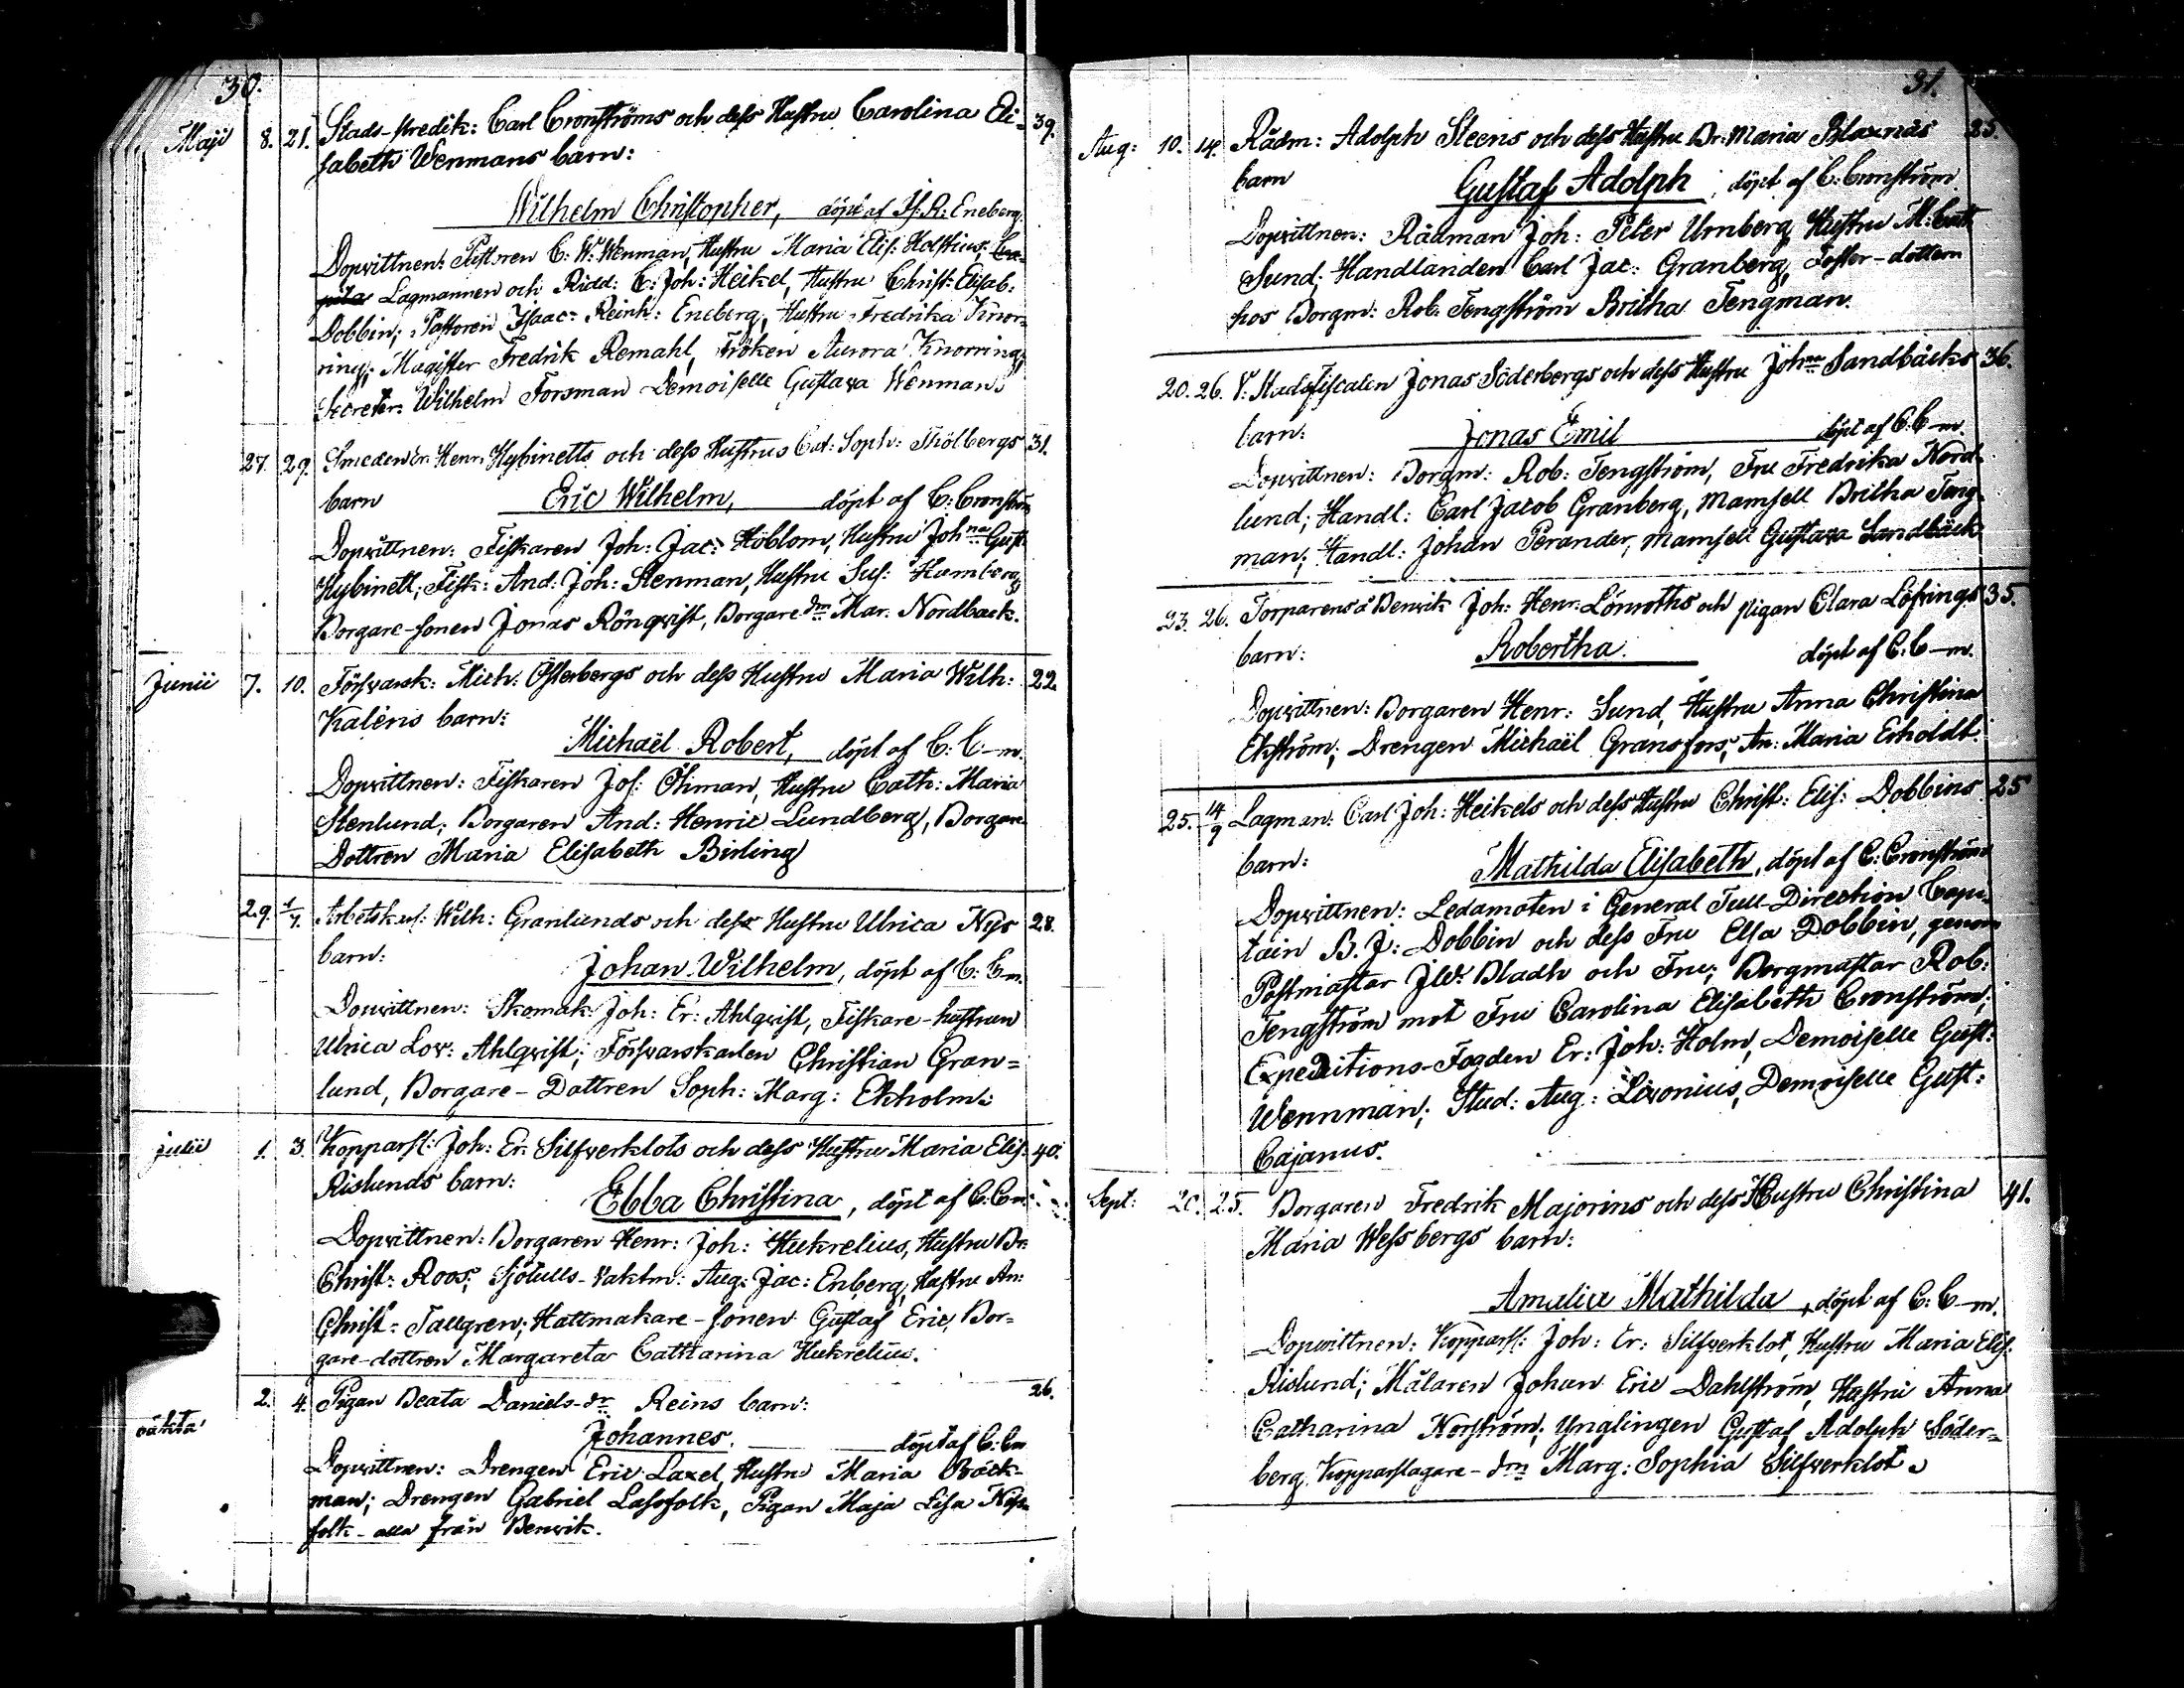 30.
Maji 8. 21. Stads-predik: Carl Cronströms och dess Hustru Carolina Eli- 39.
sabeth Wenmans barn:
Wilhelm Christopher, döpt af Is. R. Eneberg.
Dopvittnen: C: W: Wenman, Hustru Maria Elis: Holstius;
Lagmannen och Ridd: C: Joh: Heikel, Hustru Christ: Elisab:
Dobbin; Pastoren Isaac Reinh: Eneberg, Hustru Fredrika Knor-
ring; Magister Fredrik Remahl, Fröken Aurora Knorring;
Secreter: Wilhelm Forsman Demoiselle Gustava Wenman.
27. 29. Smeden Henr. Hybinetts och dess Hustrus Cat: Soph: Thölbergs 31.
barn Eric Wilhelm, döpt af C: Cronström
Dopvittnen: Fiskaren Joh: Jac: Höblom, Hustru Joh:na Gust:
Hybinett; Fisk: And: Joh: Stenman, Hustru Sus: Hamberg;
Borgare-sonen Jonas Rönqvist, Borgare dn Mar. Nordback.
Junii 7. 10. Försvarsk: Mich: Österbergs och dess Hustru Maria Wilh: 22.
Kaléns barn:
Michaël Robert, döpt af C: C-m.
Dopvittnen: Fiskaren Jos: Öhman, Hustru Cath: Maria
Stenlund; Borgaren And: Henric Lundberg, Borgare
Dottren Maria Elisabeth Birling
29. 1/7. Arbetskarl: Wilh: Granlunds och dess Hustru Ulrica Nys 28.
barn:
Johan Wilhelm, döpt af C: Cm.
Dopvittnen: Skomak: Joh: Er: Ahlqvist, Fiskare-hustrun
Ulrica Lov: Ahlqvist; Försvarskarlen Christian Gran=
lund, Borgare-Dottren Soph: Marg: Ekholm.
Julii 1. 3. Kopparsl: Joh: Er: Silfverklots och dess Hustru Maria Elis: 40.
Rislunds barn:
Ebba Christina, döpt af C. Cm:
Dopvittnen: Borgaren Henr: Joh: Hukrelius, Hustru Br:
Christ: Roos; Sjötulls-Vaktm: Aug: Jac: Enberg, Hustru An:
Christ: Tallgren; Hattmakare-sonen Gustaf Eric, Bor=
gare-dottren Margareta Catharina Hukrelius.
2. 4. Pigan Beata Daniels-dr Reins barn: 26.
oäkta
Johannes. döpt af C: Cm
Dopvittnen: Drengen Eric Laxel, Hustru Maria Bäck-
man; Drengen Gabriel Lassfolk, Pigan Maja Lisa Näs-
folk - alla från Benvik.
31.
Aug: 10. 14. Rådm: Adolph Steens och dess Hustru Br: Maria Blaxnäs 25.
barn Gustaf Adolph, döpt af C: Cronström.
Dopvittnen: Rådman Joh: Peter Urnberg, Hustru M: Cath
Sund; Handlanden Carl Jac: Granberg, Foster-dottern
hos Borgm: Rob. Tengström Britha Tengman.
20. 26. V: Stadsfiscalen Jonas Söderbergs och dess Hustru Joh:na Sandbäcks 36.
barn: Jonas Emil döpt af C. C-m.
Dopvittnen: Borgm: Rob: Tengström, Fru Fredrika Nord-
lund; Handl: Carl Jacob Granberg, Mamsell Britha Teng-
man; Handl: Johan Perander, Mamsell Gustava Sandbäck
23. 26. Torparens å Benvik Joh: Henr: Lönroths och pigan Clara Löfvings 35.
barn: Robertha. döpt af C. C-m.
Dopvittnen: Borgaren Henr: Sund, Hustru Anna Christina
Ekström; Drengen Michaël Gransfors, An: Maria Erholdt.
25. 14/9 Lagman: Carl Joh: Heikels och dess Hustru Christ: Elis: Dobbins 25
barn: Mathilda Elisabeth, döpt af C: Cronström
Dopvittnen: Ledamoten i General Tull-Direction Capi-
tain B. J: Dobbin och dess Fru Elsa Dobbin, genom
Postmästar J.W. Bladh och Fru; Borgmästar Rob:
Tengström mot Fru Carolina Elisabeth Cronström;
Expeditions-Fogden Er: Joh: Holm, Demoiselle Gust:
Wennman; Stud: Aug: Livonius, Demoiselle Gust:
Cajanus.
Sept: 20. 25. Borgaren Fredrik Majorins och dess Hustru Christina 41.
Maria Wessbergs barn:
Amalia Mathilda, döpt af C: C-m.
Dopvittnen: Kopparsl: Joh: Er: Silfverklot, Hustru Maria Elis.
Rislund; Målaren Johan Eric Dahlström, Hustru Anna
Catharina Norström; Ynglingen Gustaf Adolph Söder=
berg, Kopparslagare-drn Marg: Sophia Silfverklot.